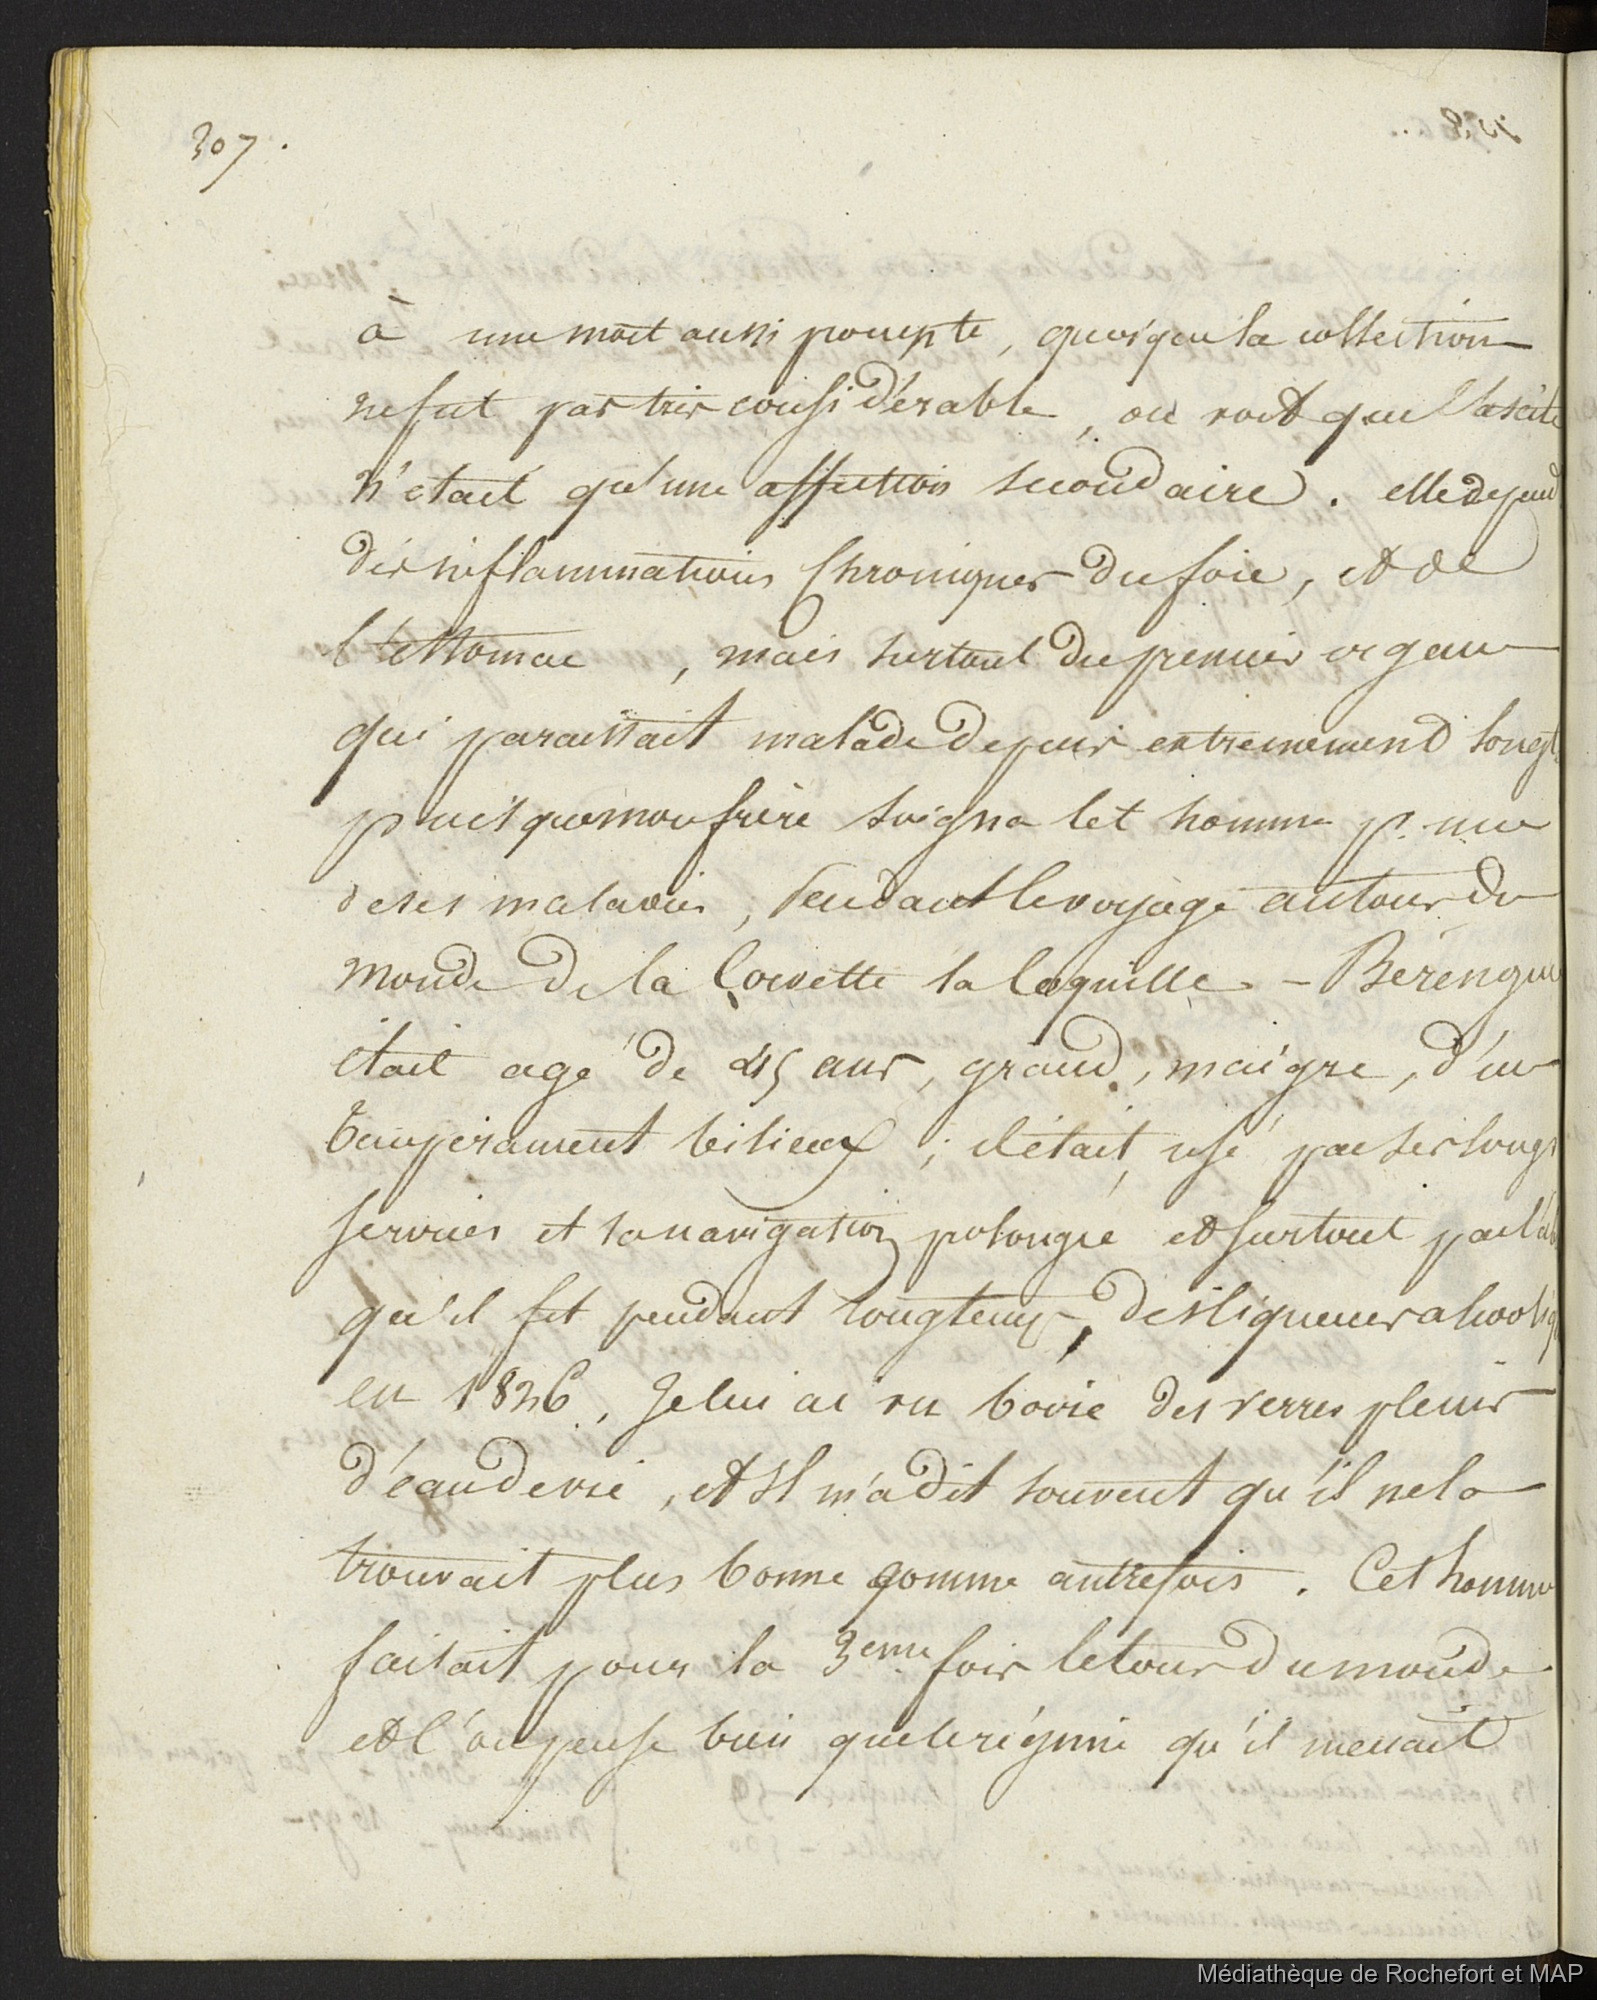 307.
à une mort aussi prompte, quoique la collection
ne fut pas très considérable, on voit que l'ascite
n'était qu'une affection secondaire. elle depend
des inflammations Chroniques du foie, et de
l'estomac, mais surtout du premier organe
qui paraissait malade depuis extremement longt
puisque mon frère soigna cet homme p. une
de ses maladies, Pendant le voyage autour du
monde de la Corvette la Coquille - Bérengue
était agé de 45 ans, grand, maigre, d'un
temperament bilieux; il était usé par ses longs
services et sa navigation polongée et surtout par l'ab
qu'il fit pendant longtemps, des liqueurs alcooliq
en 1826, Je lui ai vu boire des verres pleins
d'eau de vie, et Il m'a dit souvent qu'il ne la
trouvait plus bonne comme autrefois. Cet homme
faisait pour la 3eme fois le tour du monde
et l'on pense bien que le régime qu'il menait
Médiathèque de Rochefort et MAP